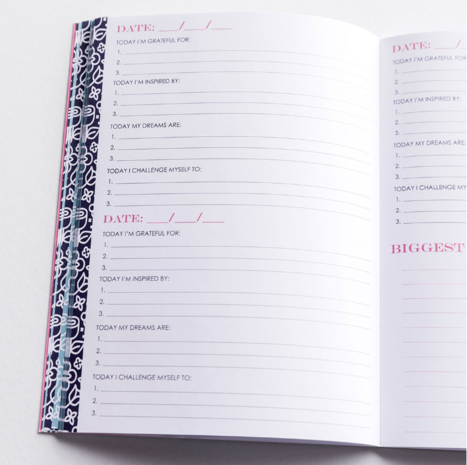 DATE: ___/___/___
TODAY I'M GRATEFUL FOR:
1.
2.
3.
TODAY I'M INSPIRED BY:
1.
2.
3.
TODAY MY DREAMS ARE:
1.
2.
3.
TODAY I CHALLENGE MYSELF TO:
1.
2.
3.
DATE: ___/___/___
TODAY I'M GRATEFUL FOR:
1.
2.
3.
TODAY I'M INSPIRED BY:
1.
2.
3.
TODAY MY DREAMS ARE:
1.
2.
3.
TODAY I CHALLENGE MYSELF TO:
1.
2.
3.
DATE: ___/
TODAY I'M GRATEFUL FOR
1.
2.
3.
TODAY I'M INSPIRED BY:
1.
2.
3.
TODAY MY DREAMS ARE:
1.
2.
3.
TODAY I CHALLENGE MY
1.
2.
3.
BIGGEST